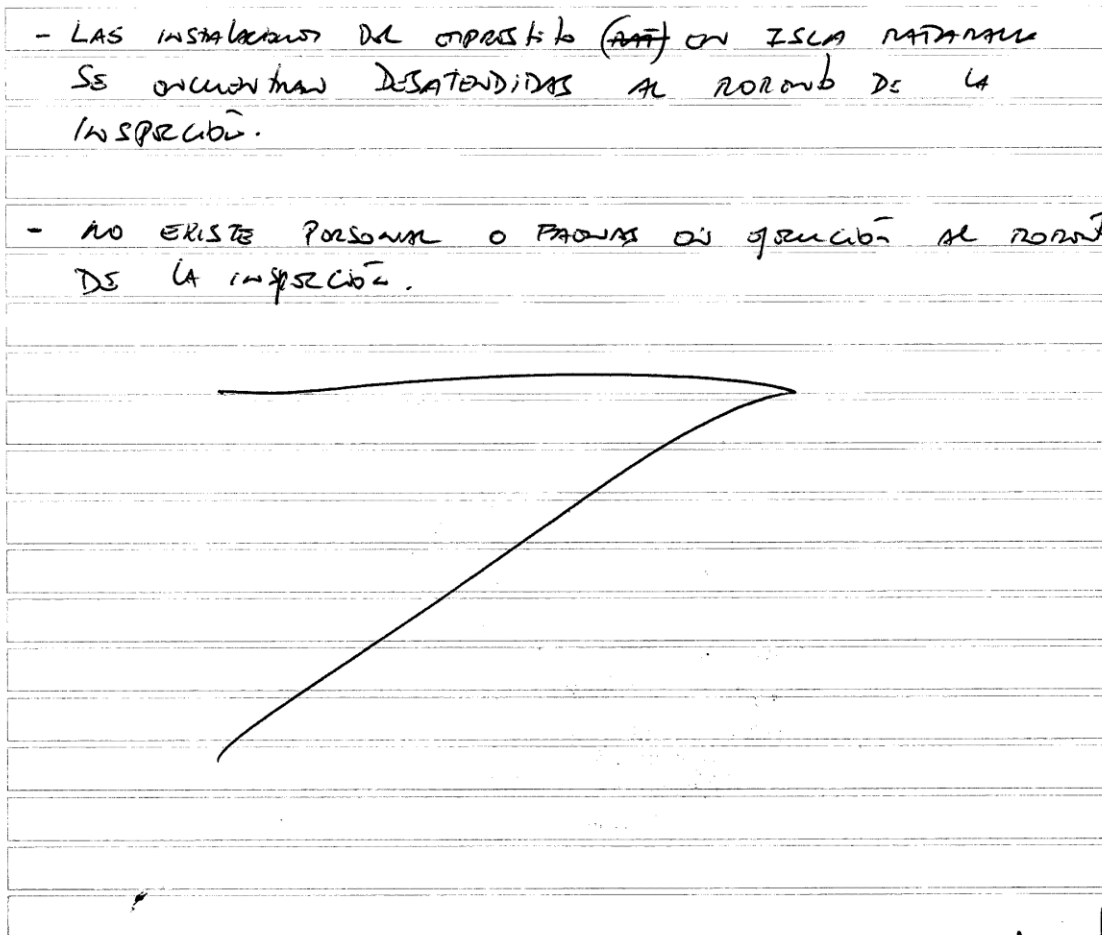 - LAS INSTALACIONES DEL EMPRESTITO EN ISLA
SE ENCUENTRAN DESATENDIDAS AL MOMENTO DE LA
INSPECCIÓN.
- NO EXISTE PERSONAL O FAENAS EN EJECUCIÓN AL MOMENTO
DE LA INSPECCIÓN.